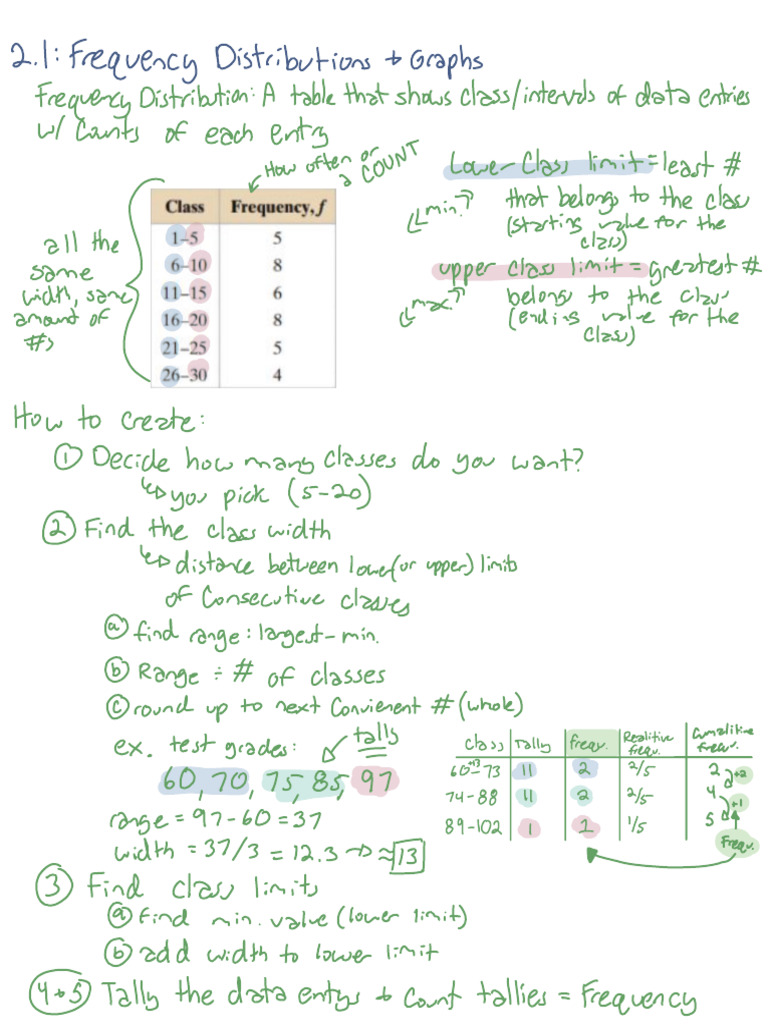 2.1: Frequency Distributions + Graphs
Frequency Distribution: A table that shows class/intervals of data entries
w/ Counts of each entry
How often or
a COUNT
all the
same
width, same
amount of
#s
Class Frequency, f
1–5 5
6–10 8
11–15 6
16–20 8
21–25 5
26–30 4
Lower Class limit = least #
"min." that belongs to the class
(starting value for the
class)
upper class limit = greatest #
"max." belongs to the class
(ending value for the
class)
How to create:
① Decide how many classes do you want?
↳ you pick (5-20)
② Find the class width
↳ distance between lower (or upper) limits
of Consecutive classes
ⓐ find range: largest - min.
ⓑ Range ÷ # of classes
ⓒ round up to next Convienent # (whole)
ex. test grades: tally
60, 70, 75, 85, 97
range = 97 - 60 = 37
width = 37/3 = 12.3 → ≈ 13
Class Tally freq. Realitive freq. Cumalitive frequ.
+13
60-73 11 2 2/5 2
+2
74-88 11 2 2/5 4
+1
89-102 1 1 1/5 5
Frequ.
③ Find class limits
ⓐ Find min. value (lower limit)
ⓑ add width to lower limit
4+5 Tally the data entys + Count tallies = Frequency